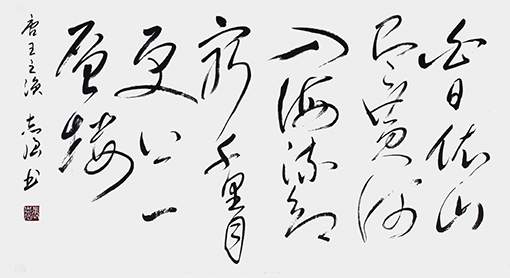 白日依山
尽黄河
入海流欲
穷千里目
更上一
层楼
唐王之涣 志 书